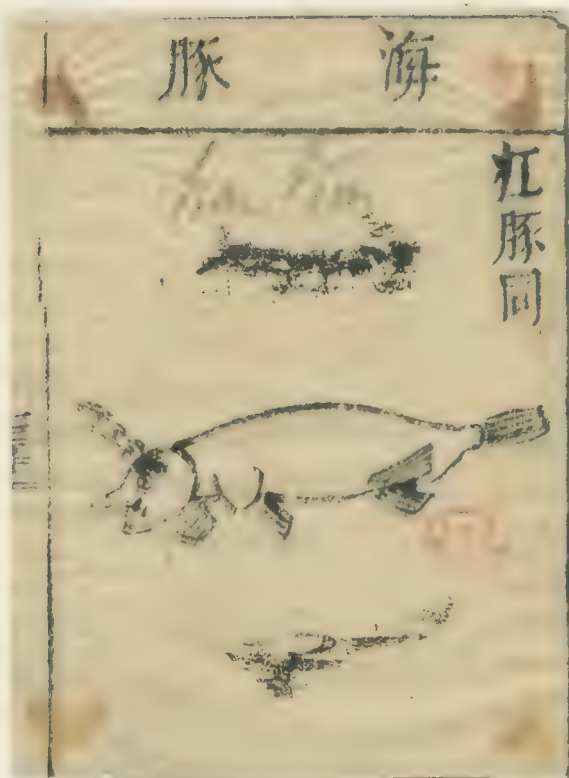 海豚
江豚同